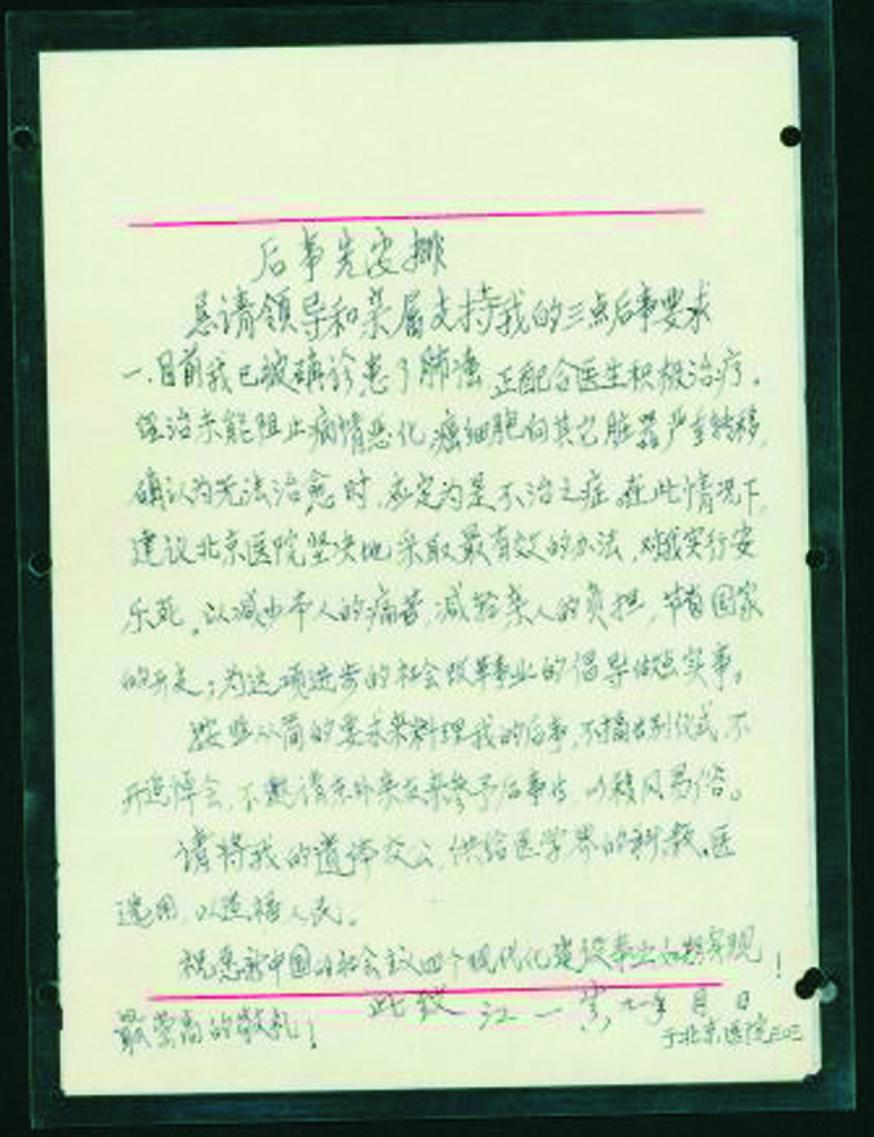 后事先安排
恳请领导和亲属支持我的三点后事要求
一.目前我已被确诊患了肺癌,正配合医生积极治疗。
经治未能阻止病情恶化,癌细胞向其它脏器严重转移,
确认为无法治愈时,应定为是不治之症。在此情况下,
建议北京医院坚决地采取最有效的办法,对我实行安
乐死。以减少本人的痛苦,减轻亲人的负担,节省国家
的开支;为这项进步的社会改革事业的倡导做点实事。
从简的要求来料理我的后事,不搞告别仪式,不
开追悼会,不邀请京外亲友来参予后事,以移风易俗。
请将我的遗体交公,供给医学界的科.教.医
选用,以造福人民。
祝愿新中国的社会主义四个现代化建设事业如期实现!
此致 江一 九一年 月 日
最崇高的敬礼! 于北京医院